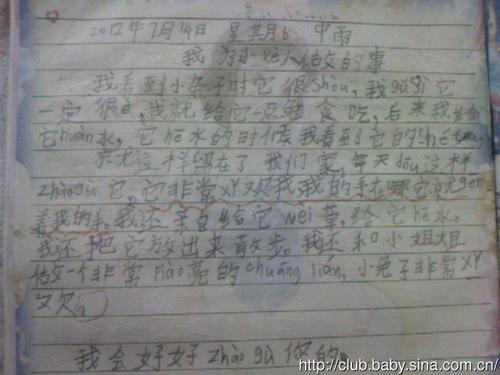 2012年7月14日 星其月6 中雨
我为小ke人做文的事
我看到小兔子时它很shòu,我gūji它
一定很,我就给它一点食吃,后来我给
它huàn水,它he水的时候我看到它的shé
京尤这样留在了我们家,每天dōu这样
zhàogù它,它非常xi欢我我的手在哪它京尤gēn
着我的手。我还亲自给它wei草,给它he水。
我还把它放出来散步。我还和小姐姐
做文一个非常piào亮的chuāng lián,小兔子非常xi
又欠。
我会好好zhào gù你的。
http://club.baby.sina.com.cn/